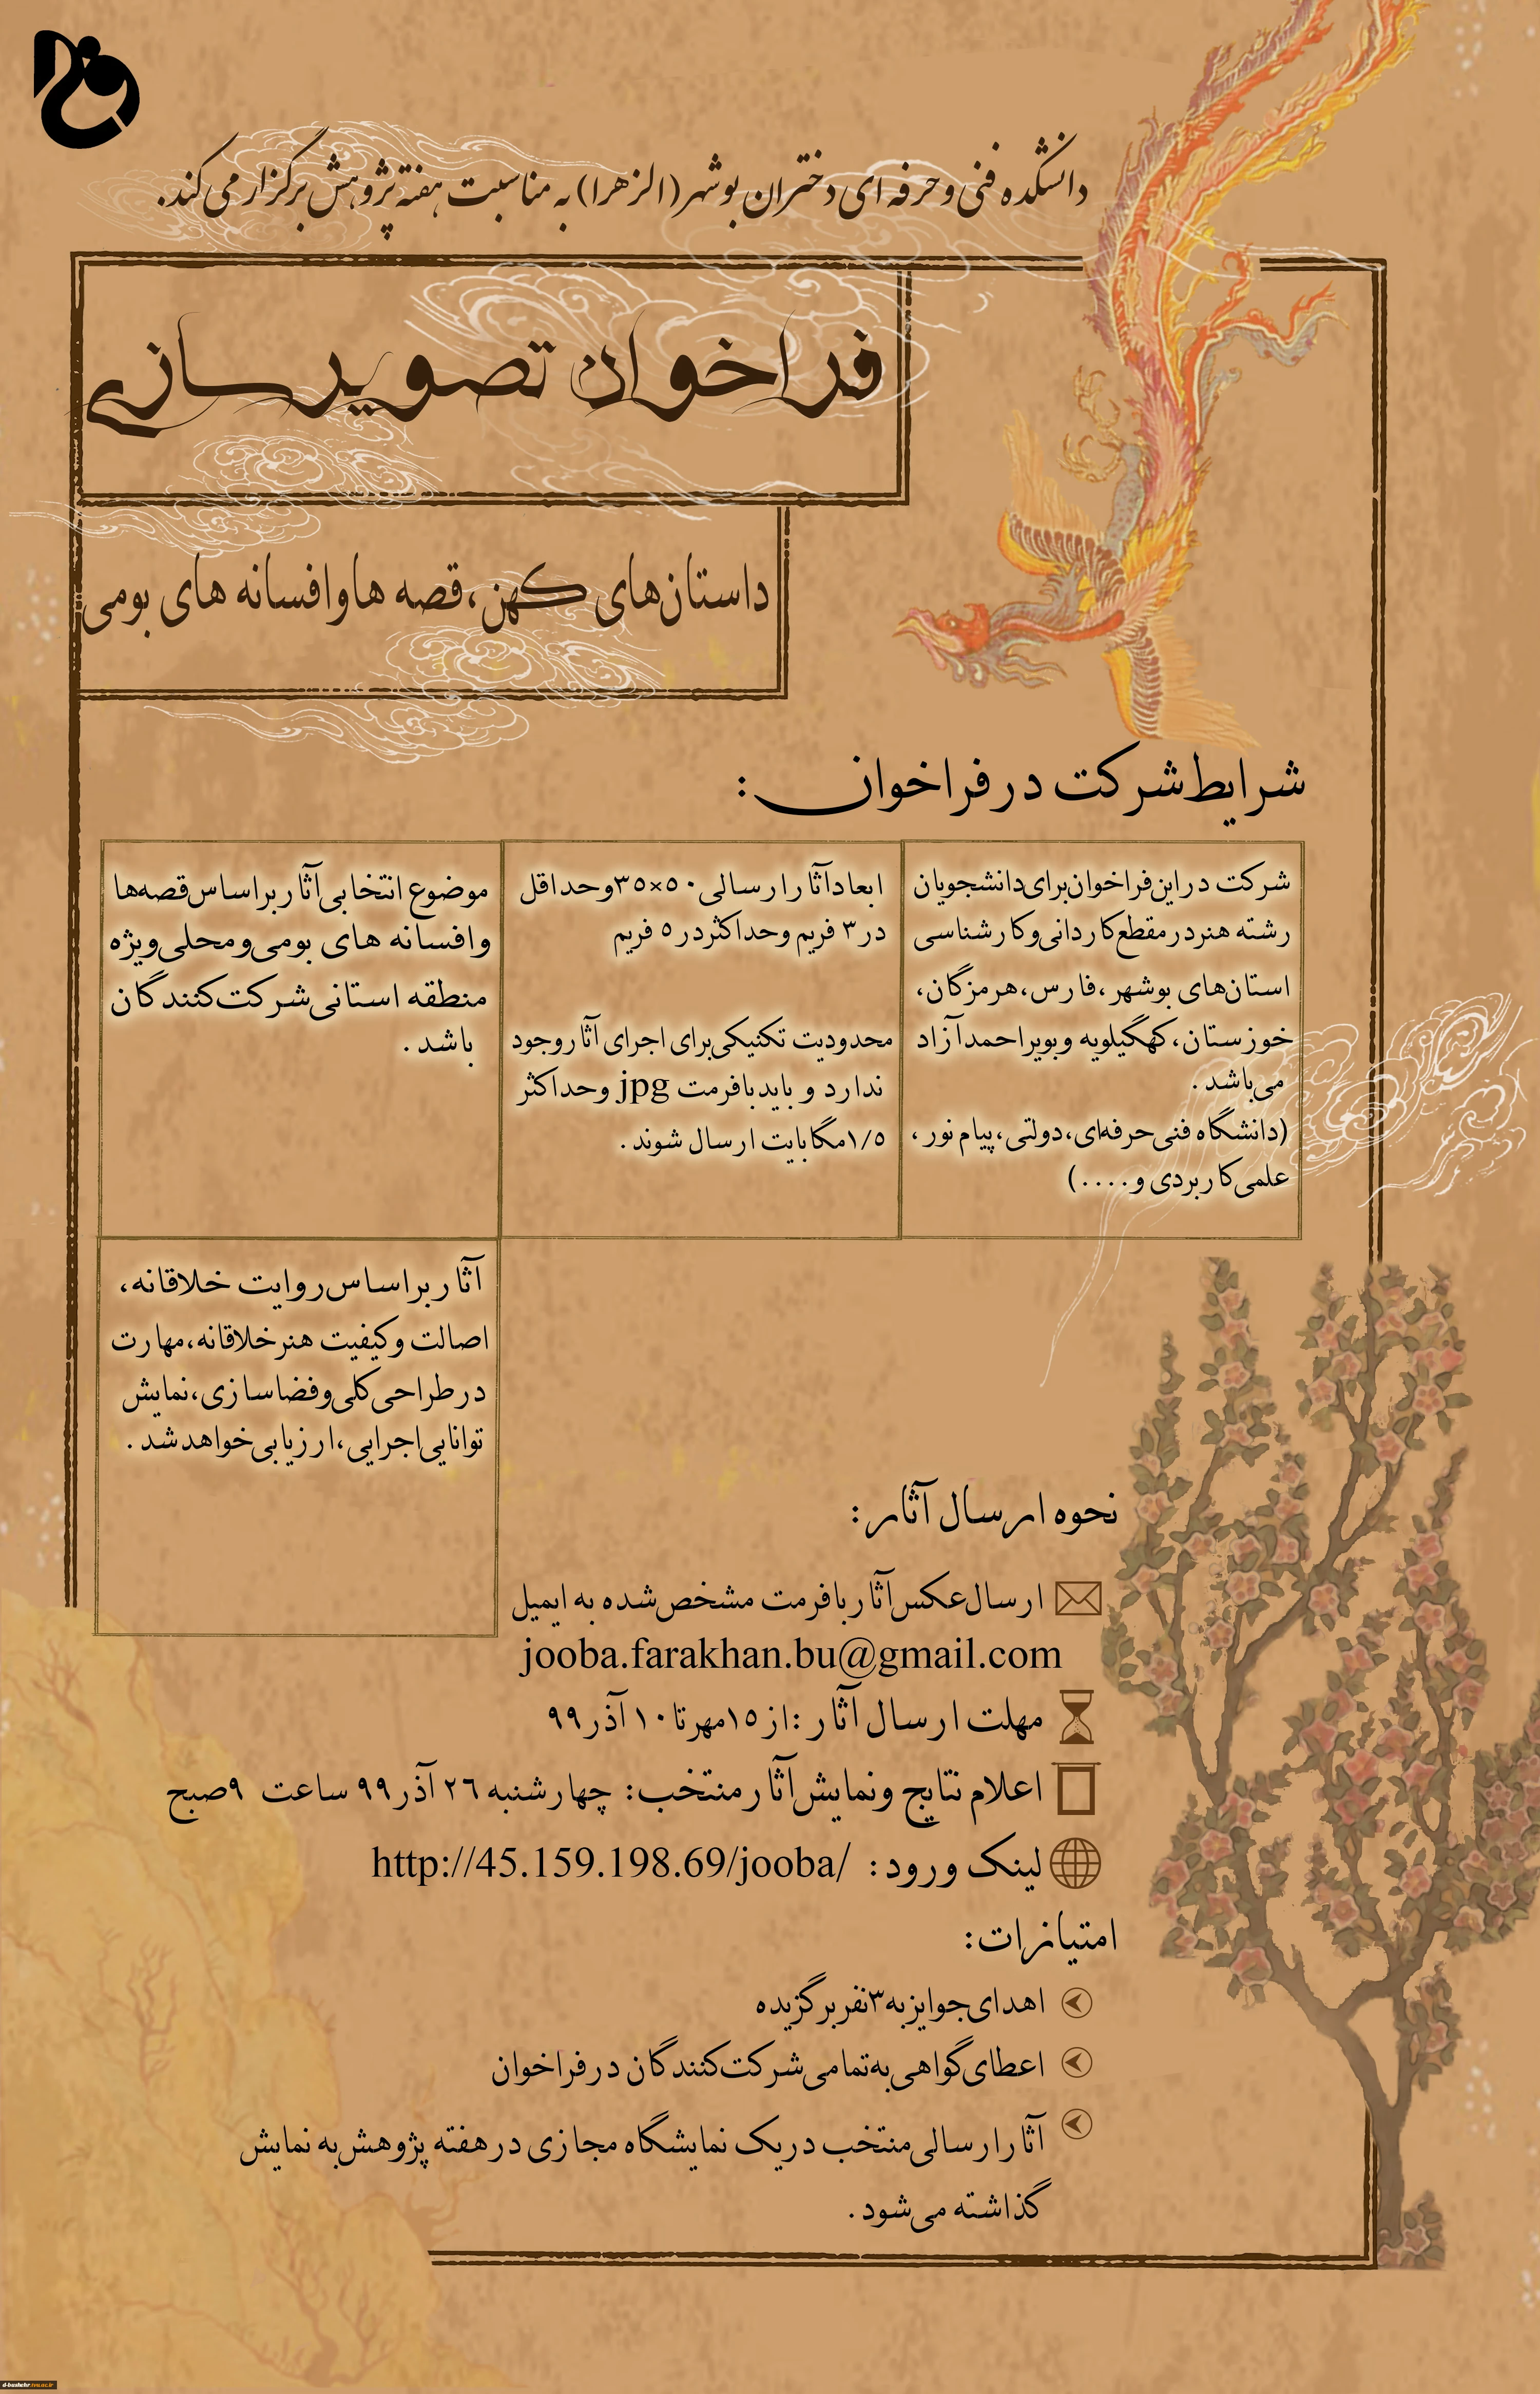 دانشکده فنی و حرفه ای دختران بوشهر (الزهرا) به مناسبت هفته پژوهش برگزار می کند.
فراخوان تصویرسازی
داستان‌های کهن، قصه ها و افسانه های بومی
شرایط شرکت در فراخوان :
شرکت در این فراخوان برای دانشجویان
رشته هنر در مقطع کاردانی و کارشناسی
استان‌های بوشهر، فارس، هرمزگان،
خوزستان، کهگیلویه و بویراحمد آزاد
می‌باشد .
(دانشگاه فنی حرفه‌ای، دولتی، پیام نور ،
علمی کاربردی و ....)
ابعاد آثار ارسالی ۵۰×۳۵ و حداقل
در ۳ فریم و حداکثر در ۵ فریم
محدودیت تکنیکی برای اجرای آثار وجود
ندارد و باید با فرمت jpg و حداکثر
۱/۵ مگابایت ارسال شوند .
موضوع انتخابی آثار براساس قصه‌ها
و افسانه های بومی و محلی ویژه
منطقه استانی شرکت‌کنندگان
باشد .
آثار براساس روایت خلاقانه،
اصالت و کیفیت هنر خلاقانه، مهارت
در طراحی کلی و فضاسازی، نمایش
توانایی اجرایی، ارزیابی خواهد شد .
نحوه ارسال آثار :
ارسال عکس آثار با فرمت مشخص شده به ایمیل
jooba.farakhan.bu@gmail.com
مهلت ارسال آثار : از ۱۵ مهر تا ۱۰ آذر ۹۹
اعلام نتایج و نمایش آثار منتخب : چهارشنبه ۲۶ آذر ۹۹ ساعت ۹ صبح
لینک ورود : http://45.159.198.69/jooba/
امتیازات :
اهدای جوایز به ۳ نفر برگزیده
اعطای گواهی به تمامی شرکت‌کنندگان در فراخوان
آثار ارسالی منتخب در یک نمایشگاه مجازی در هفته پژوهش به نمایش
گذاشته می‌شود .
d-bushehr.tvu.ac.ir